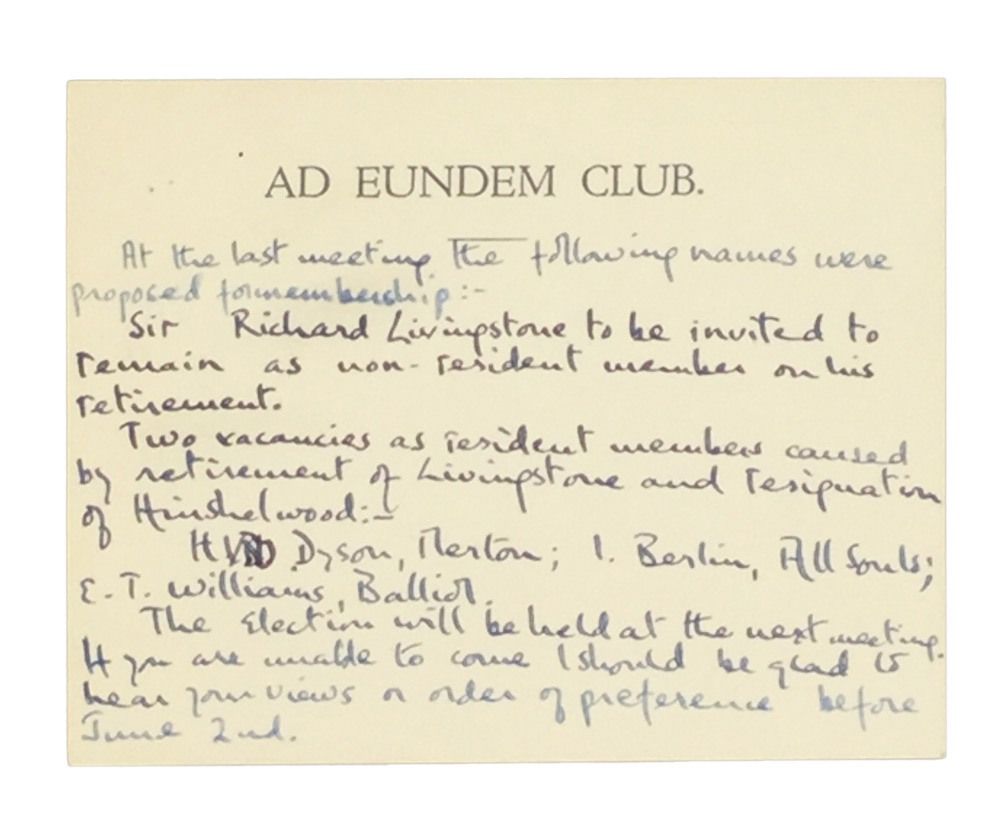 AD EUNDEM CLUB.
At the last meeting the following names were
proposed for membership :-
Sir Richard Livingstone to be invited to
remain as non-resident member on his
retirement.
Two vacancies as resident members caused
by retirement of Livingstone and resignation
of Hinshelwood:-
HVD Dyson, Merton; I. Berlin, All Souls;
E.T. Williams, Balliol.
The election will be held at the next meeting.
If you are unable to come I should be glad to
hear your views or order of preference before
June 2nd.